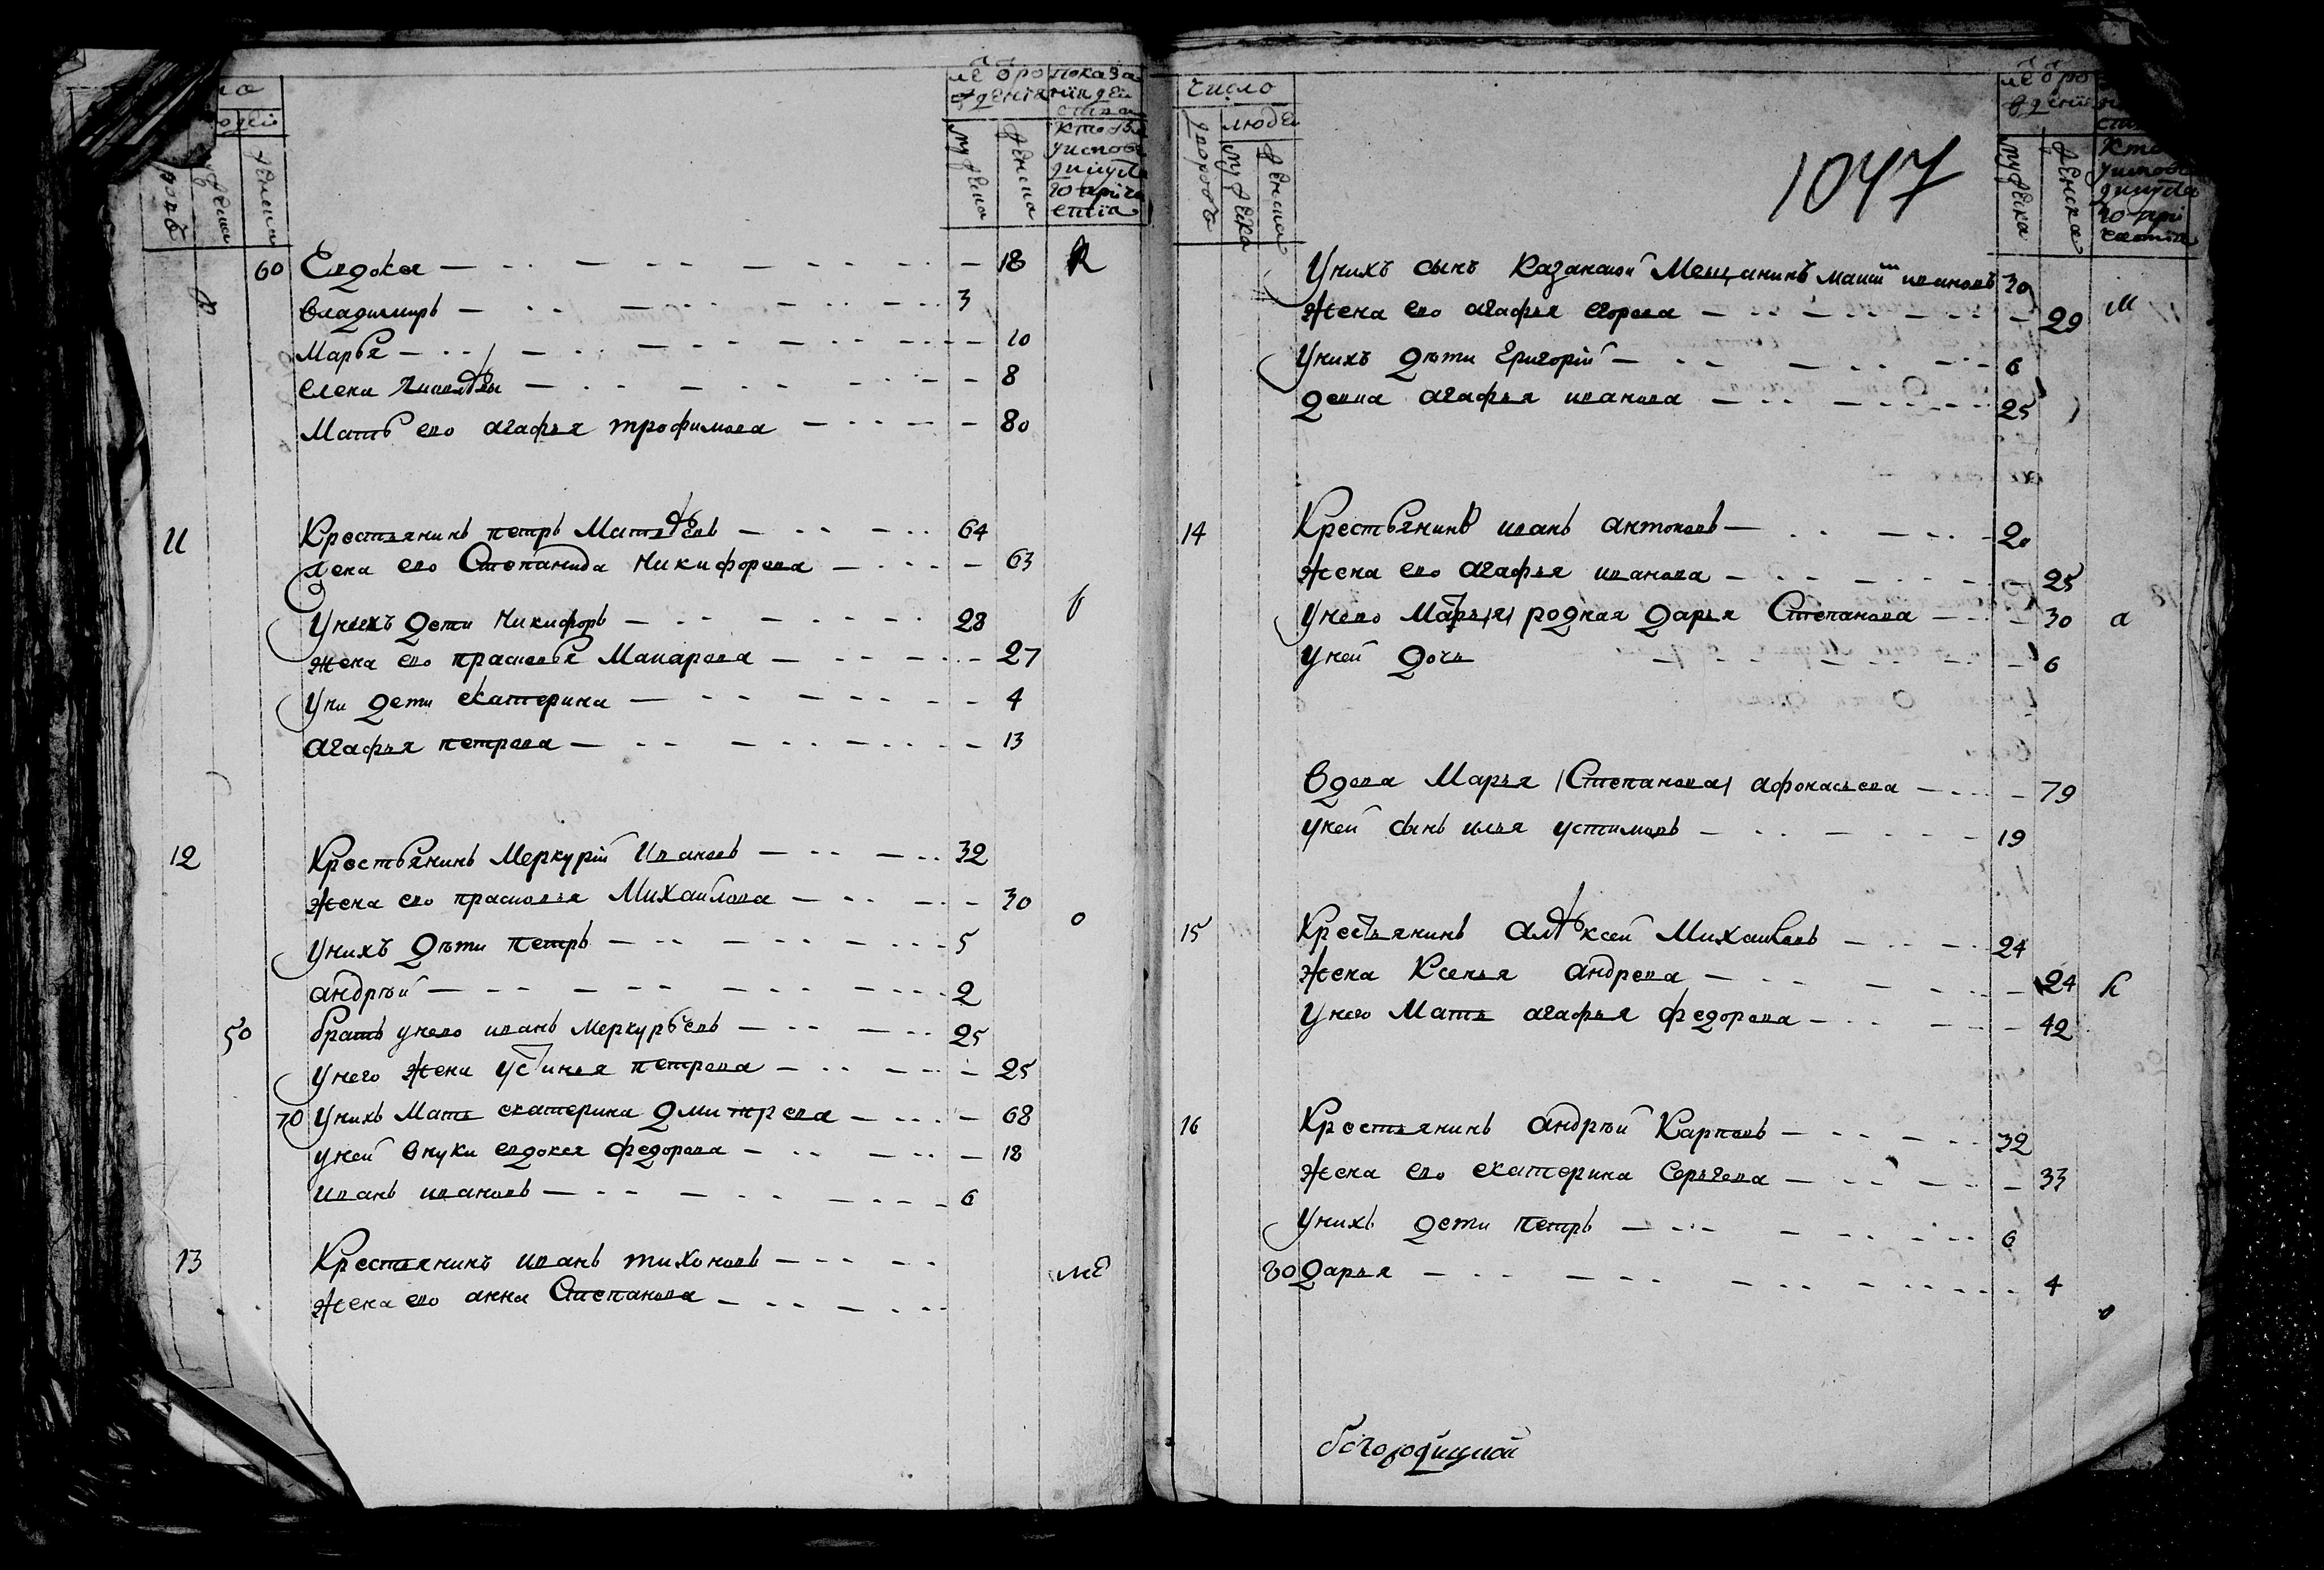 ле ѿ ро
жденїя
показа
нїи дей
ства
мужеска
женска
кто бы
женска
60 Евдокея 18
Владимиръ 3
Марья 10
елена 8
Мать ево агафья трофимова 80
11 Крестьянинъ петръ Матвѣевъ 64
жена ево Степанида Никифорова 63
У нихъ дети Никифоръ 28
жена ево прасковья Макарова 27
У ни дети екатерина 4
агафья петрова 13
12 Крестьянинъ Меркурїй Ивановъ 32
жена ево прасковья Михайлова 30
У нихъ дѣти петръ 5
андрѣй 2
50 братъ у нево иванъ Меркурьевъ 25
У него жена устинья петрова 25
70 У нихъ Мать екатерина дмитрева 68
у ней внуки евдокея федорова 18
иванъ ивановъ 6
13 Крестьянинъ иванъ тихоновъ
жена ево анна Степанова
число
людей
дворовъ
мужеска
женска
1047
ле ѿ ро
мужеска
женска
У нихъ сынъ Казанской Мещанинъ ивановъ 30
жена ево агафья егорова 29
У нихъ дѣти Григорїй 6
девка агафья иванова 25
14 Крестьянинъ иванъ антоновъ 20
жена ево агафья иванова 25
У нево родная дарья Степанова 30
У ней дочь 6
Вдова Марья (Степанова) афонасьева 79
у ней сынъ илья устимовъ 19
15 Крестьянинъ алѣксей Михайловъ 24
жена Ксенья андрева 24
У него Мать агафья федорова 42
16 Крестьянинъ андрѣй Карповъ 32
жена ево екатерина Сергева 33
У нихъ дети петръ 6
80 дарья 4
богородицкой